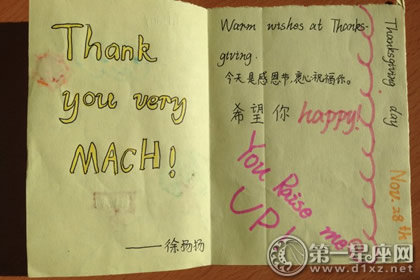 Thank
you very
MACH!
——徐扬扬
Warm wishes at Thanks-
giving.
今天是感恩节,衷心祝福你。
希望你 happy!
You Raise me
UP!
Thanksgiving day
Nov. 28 th
第一星座网
www.d1xz.net